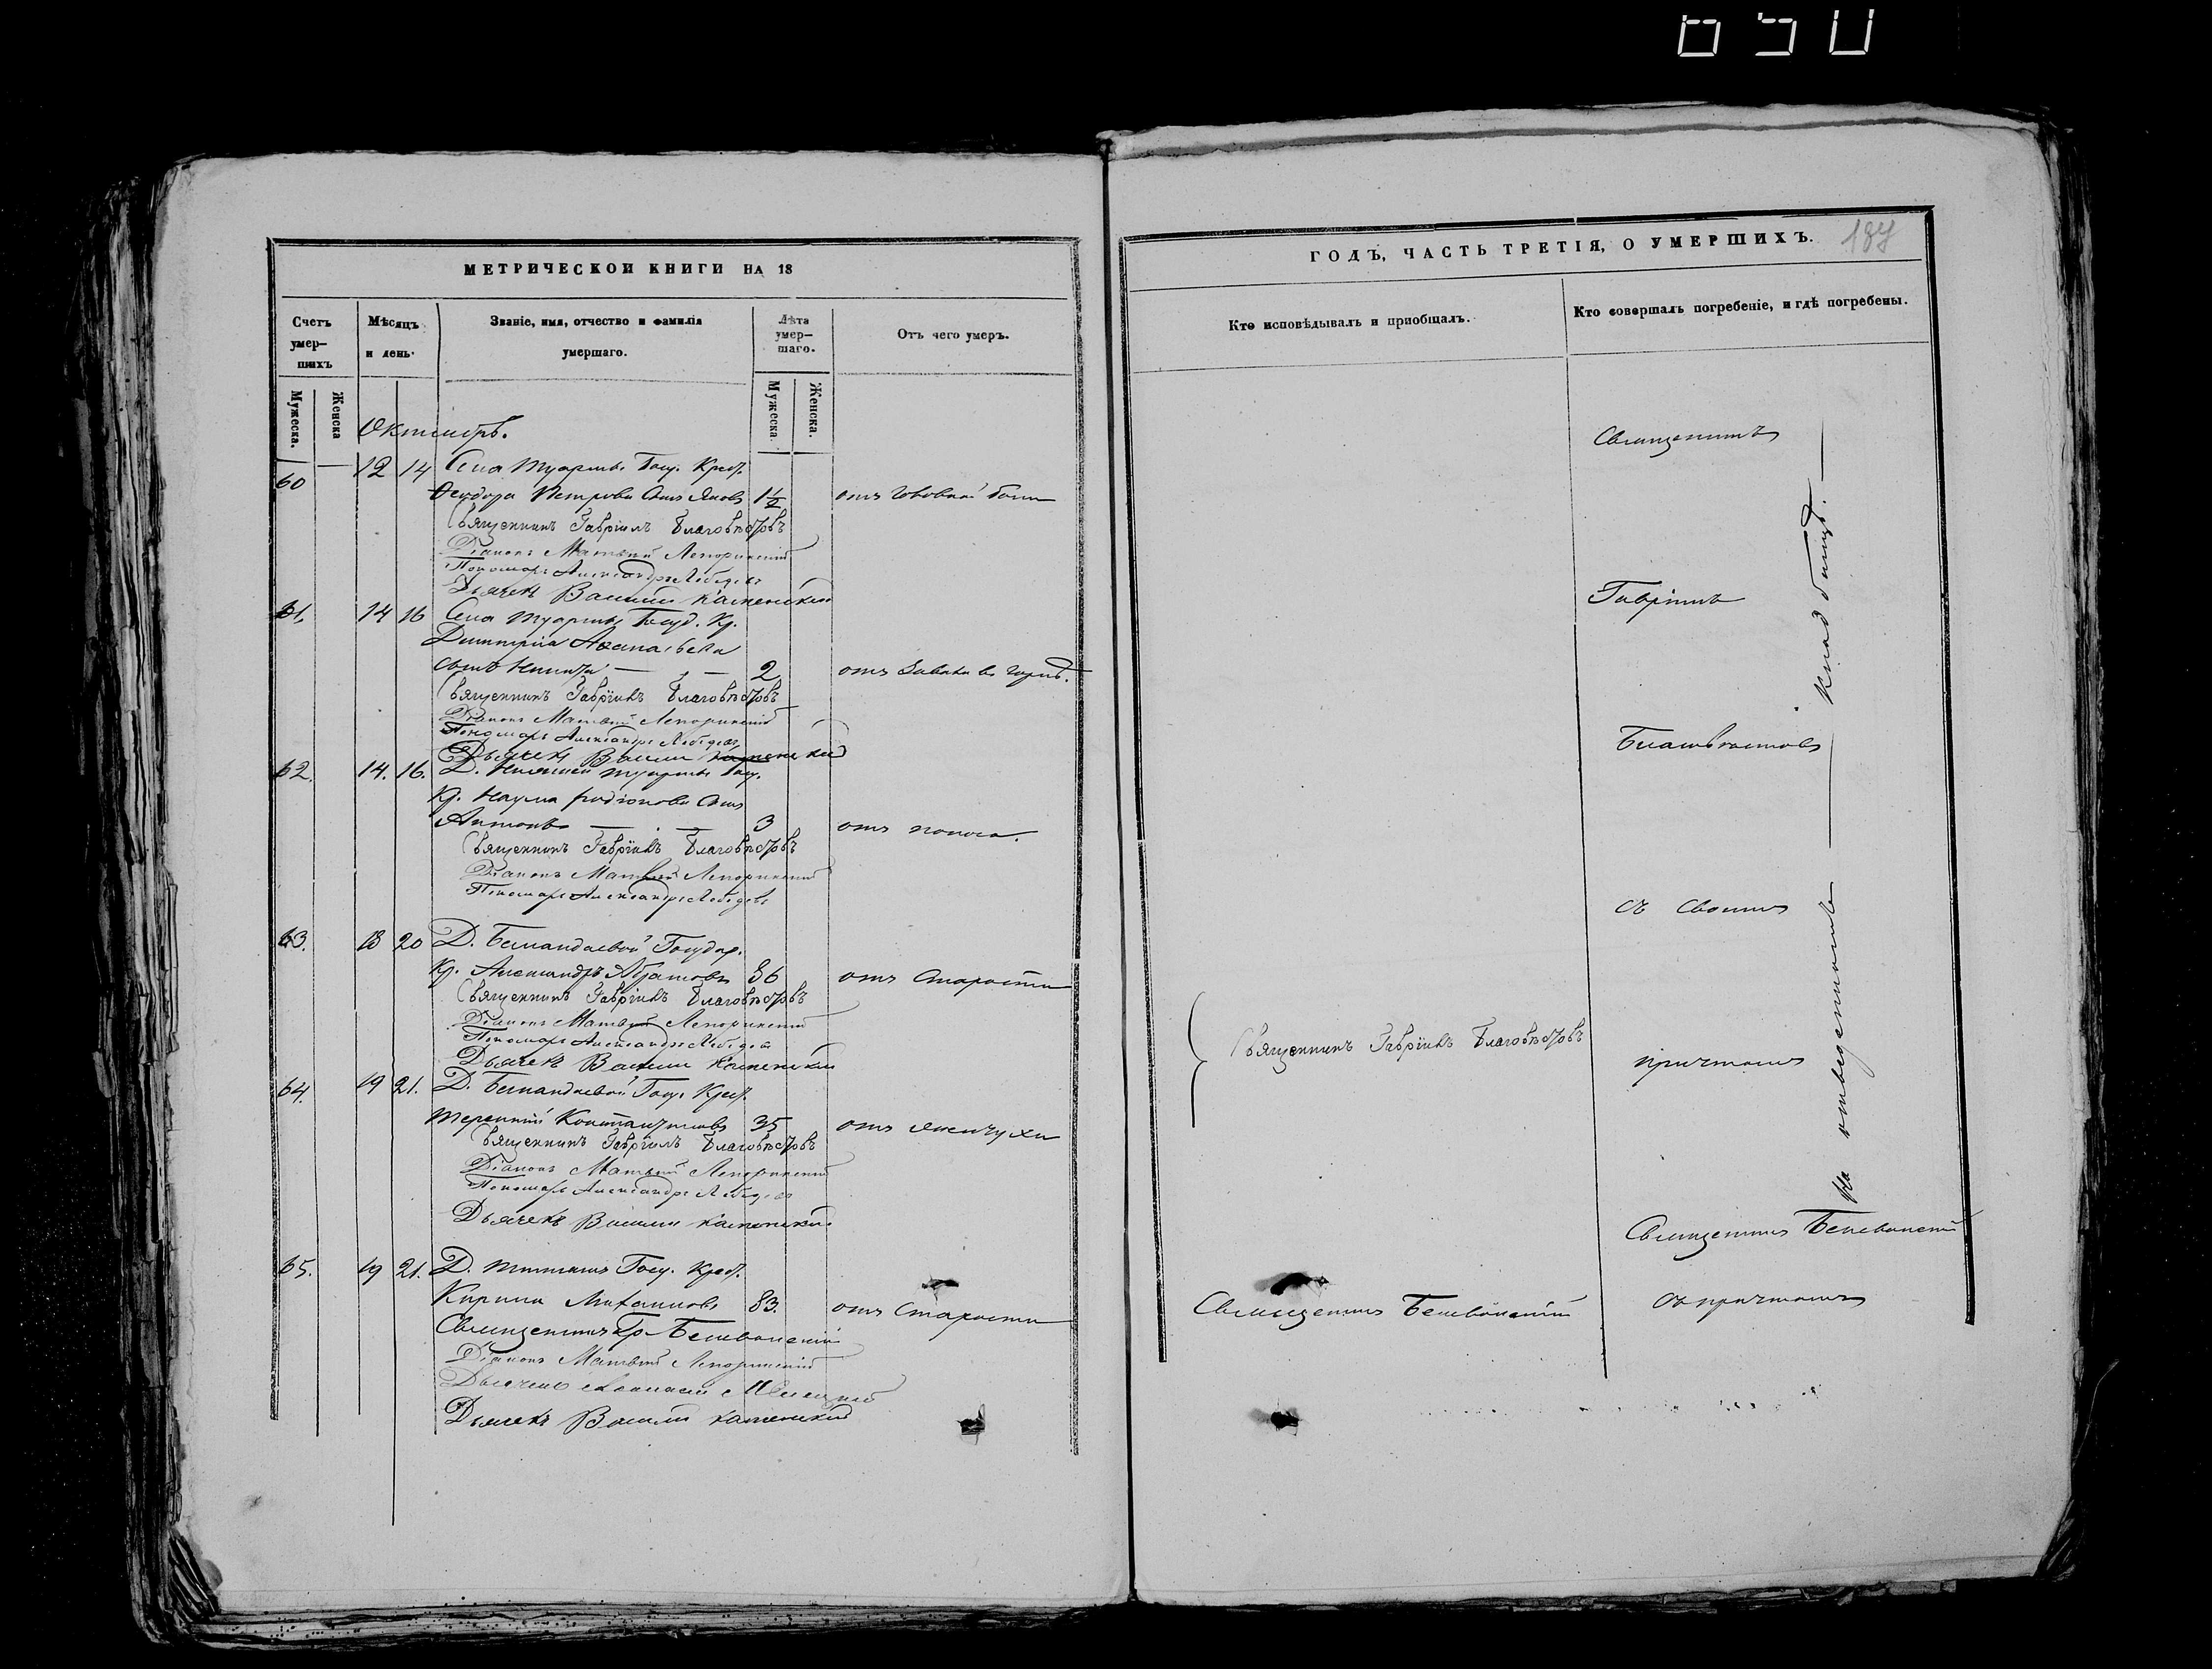 650
МЕТРИЧЕСКОЙ КНИГИ НА 18
Счетъ умер-шихъ
Мѣсяцъ и день.
Званіе, имя, отчество и фамилія умершаго.
Лѣта умер-шаго.
Отъ чего умеръ.
Мужеска.
Женска
Мужеска
Женска.
Октябрь.
60 12 14 Села Туармы Госу. Крест.
Ѳеодора Петрова сынъ Яковъ 1½ отъ головной боли
Священникъ Гавріилъ Благовѣстовъ
Діаконъ Матвѣй Лепоринскій
Пономарь Александръ Лебедевъ
Дьячекъ Василій Каменскій
61. 14 16 Села Туармы Госуд. Кр.
Димитрія Аѳанасьева
сынъ Никита 2 отъ
Священникъ Гавріилъ Благовѣстовъ
Діаконъ Матвѣй Лепоринскій
Пономарь Александръ Лебедевъ
Дьячекъ Василій Каменскій
62. 14. 16. Д. Туармы Госу.
Кр. Наума Родіонова сынъ
Антонъ 3 отъ поноса.
Священникъ Гавріилъ Благовѣстовъ
Діаконъ Матвѣй Лепоринскій
Пономарь Александръ Лебедевъ
63. 18 20 Д. Государ.
Кр. Александръ Абрамовъ 86 отъ старости
Священникъ Гавріилъ Благовѣстовъ
Діаконъ Матвѣй Лепоринскій
Пономарь Александръ Лебедевъ
Дьячекъ Василій Каменскій
64. 19 21. Д. Госу. Крест.
Терентій Константиновъ 35 отъ
Священникъ Гавріилъ Благовѣстовъ
Діаконъ Матвѣй Лепоринскій
Пономарь Александръ Лебедевъ
Дьячекъ Василій Каменскій
65. 19 21. Д. Госу. Крест.
Кирилъ Михаиловъ 83. отъ старости
Священникъ
Діаконъ Матвѣй Лепоринскій
Дьячекъ
Дьячекъ Василій Каменскій
ГОДЪ, ЧАСТЬ ТРЕТІЯ, О УМЕРШИХЪ.
187
Кто исповѣдывалъ и пріобщалъ.
Кто совершалъ погребеніе, и гдѣ погребены.
Священникъ
Гавріилъ
Благовѣстовъ
съ своимъ
Священникъ Гавріилъ Благовѣстовъ
причтомъ
На отведенномъ кладбищѣ.
Священникъ
Священникъ
съ причтомъ